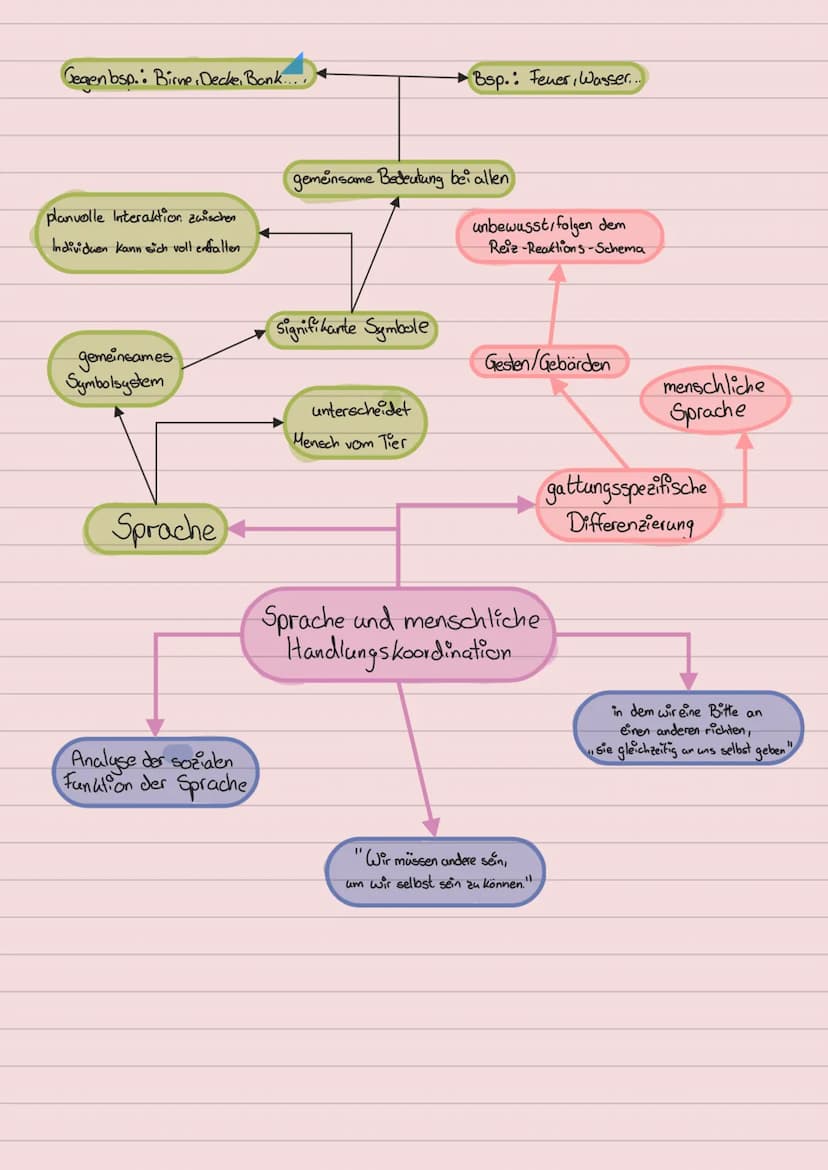 Gegenbsp.: Birne, Decke, Bank...,
Bsp.: Feuer, Wasser...
gemeinsame Bedeutung bei allen
planvolle Interaktion zwischen
Individuen kann sich voll entfalten
unbewusst, folgen dem
Reiz-Reaktions-Schema
signifikante Symbole
gemeinsames
Symbolsystem
Gesten/Gebärden
menschliche
Sprache
unterscheidet
Mensch vom Tier
gattungsspezifische
Differenzierung
Sprache
Sprache und menschliche
Handlungskoordination
in dem wir eine Bitte an
einen anderen richten,
„sie gleichzeitig an uns selbst geben"
Analyse der sozialen
Funktion der Sprache
"Wir müssen andere sein,
um wir selbst sein zu können."